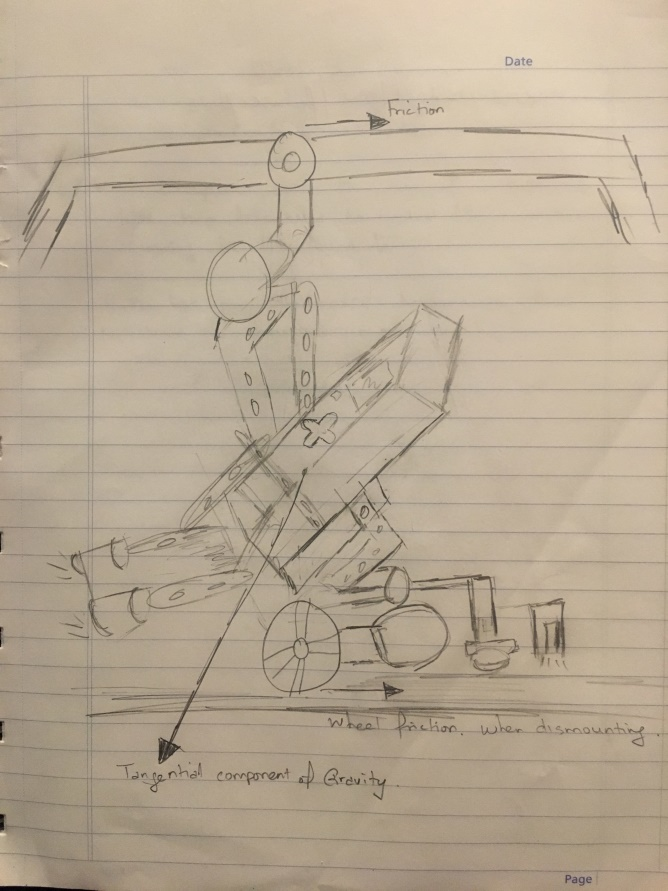 Date
Friction
Wheel friction. when dismounting.
Tangential component of Gravity.
Page